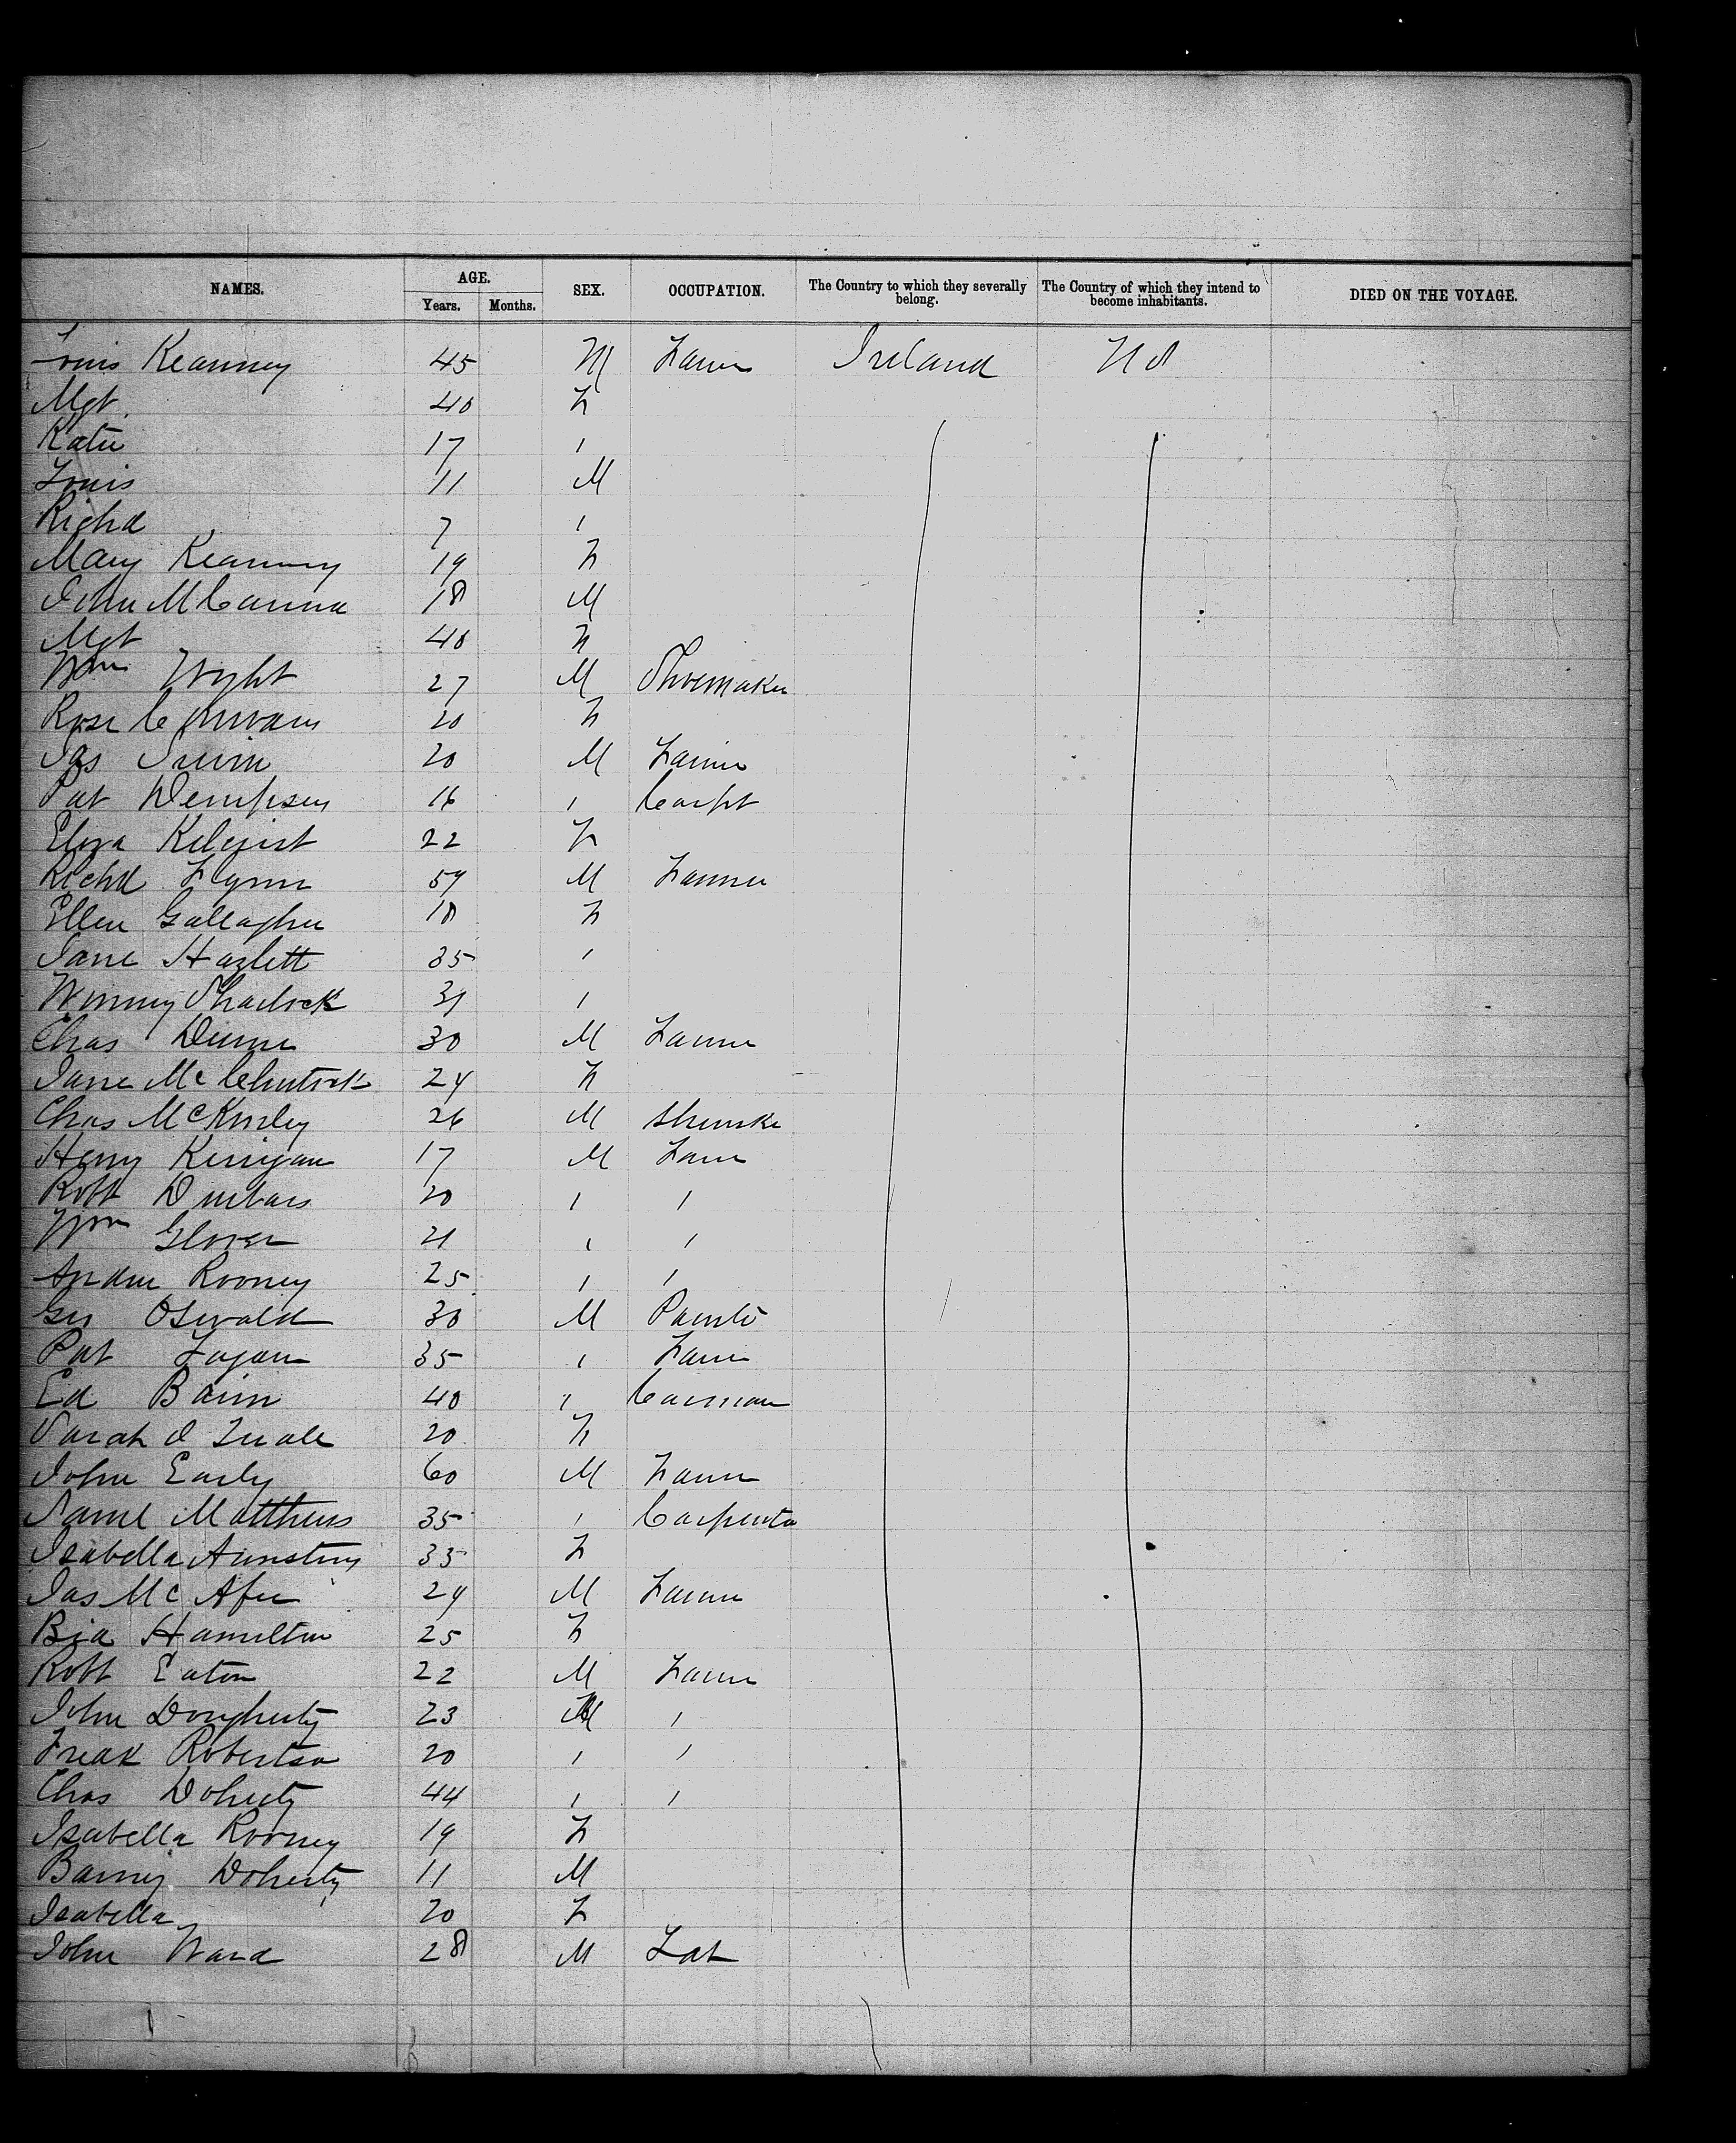 NAMES. AGE. SEX. OCCUPATION. The Country to which they severally belong. The Country of which they intend to become inhabitants. DIED ON THE VOYAGE.
Years. Months.
Louis Kearney 45 M Farmer Ireland US
Mgt 40 F
Katie 17 "
Louis 11 M
Richd 7 "
Mary Kearney 19 F
John McCanna 18 M
Mgt 40 F
Wm Wyht 27 M Shoemaker
Rose 20 F
Jas Irwin 20 M Farmer
Pat Dempsey 16 " Carpt
Eliza Kilgist 22 F
Richd Flynn 59 M Farmer
Ellen Gallagher 18 F
Jane Hazlett 35 "
Winny Sharlock 31 "
Chas Dunne 30 M Farmer
Jane McClintock 24 F
Chas McKinley 26 M Shmkr
Henry Kerrigan 17 M Farm
Robt Dunbars 20 " "
Wm Glover 21 " "
Andw Rooney 25 " "
Geo Oswald 30 M Painter
Pat Fagan 35 " Farm
Ed Bairn 40 " Carman
Sarah J Quale 20 F
John Early 60 M Farm
Saml Matthews 35 " Carpenter
Isabella Armstrong 33 F
Jas McAfee 24 M Farmer
Bia Hamilton 25 F
Robt Eaton 22 M Farm
John Dougherty 23 M "
Fredk Robertson 20 " "
Chas Doherty 44 " "
Isabella Rooney 19 F
Barney Doherty 11 M
Isabella 20 F
John Ward 28 M Lab